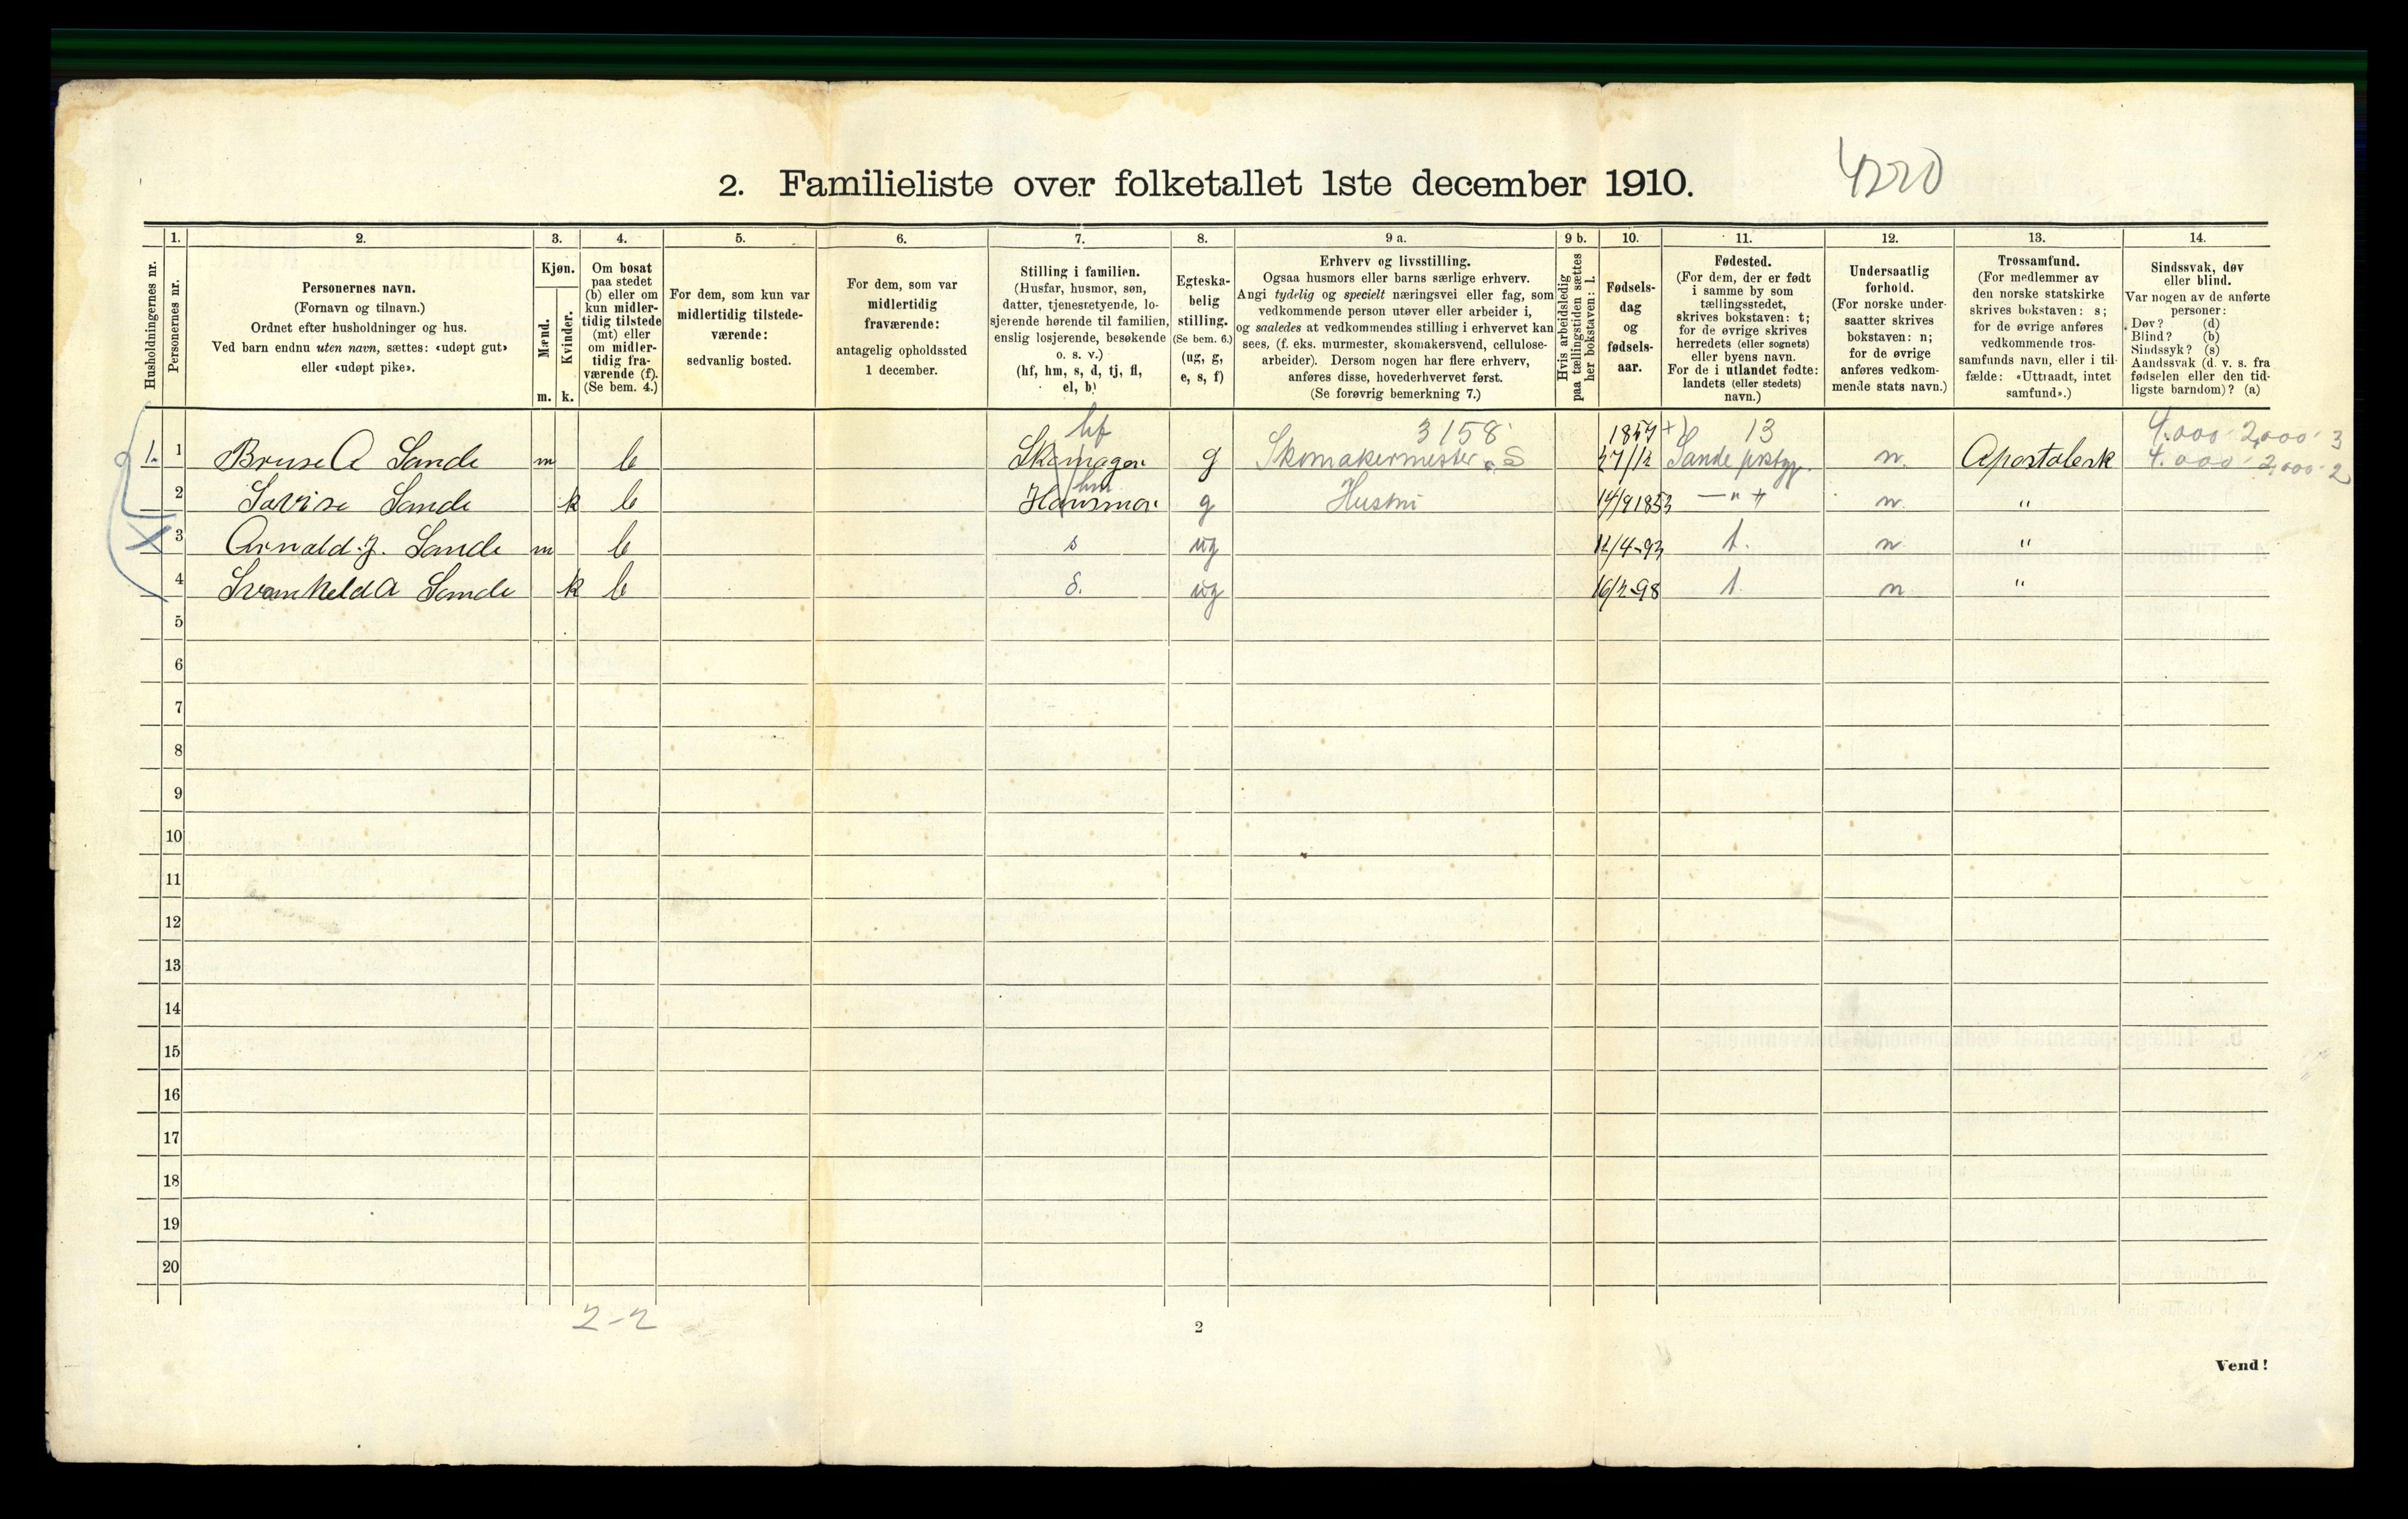 2. Familieliste over folketallet 1ste december 1910.
4220
Husholdningernes nr.
1.
Personernes nr.
2.
Personernes navn.
(Fornavn og tilnavn.)
Ordnet efter husholdninger og hus.
Ved barn endnu uten navn, sættes: «udøpt gut»
eller «udøpt pike».
3.
Kjøn.
Mænd.
Kvinder.
m. k.
4.
Om bosat
paa stedet
(b) eller om
kun midler-
tidig tilstede
(mt) eller
om midler-
tidig fra-
værende (f).
(Se bem. 4.)
5.
For dem, som kun var
midlertidig tilstede-
værende:
sedvanlig bosted.
6.
For dem, som var
midlertidig
fraværende:
antagelig opholdssted
1 december.
7.
Stilling i familien.
(Husfar, husmor, søn,
datter, tjenestetyende, lo-
sjerende hørende til familien,
enslig losjerende, besøkende
o. s. v.)
(hf, hm, s, d, tj, fl,
el, b)
8.
Egteska-
belig
stilling.
(Se bem. 6.)
(ug, g,
e, s, f)
9 a.
Erhverv og livsstilling.
Ogsaa husmors eller barns særlige erhverv.
Angi tydelig og specielt næringsvei eller fag, som
vedkommende person utøver eller arbeider i,
og saaledes at vedkommendes stilling i erhvervet kan
sees, (f. eks. murmester, skomakersvend, cellulose-
arbeider). Dersom nogen har flere erhverv,
anføres disse, hovederhvervet først.
(Se forøvrig bemerkning 7.)
9 b.
Hvis arbeidsledig
paa tællingstiden sættes
her bokstaven: l.
10.
Fødsels-
dag
og
fødsels-
aar.
11.
Fødested.
(For dem, der er født
i samme by som
tællingsstedet,
skrives bokstaven: t;
for de øvrige skrives
herredets (eller sognets)
eller byens navn.
For de i utlandet fødte:
landets (eller stedets)
navn.)
12.
Undersaatlig
forhold.
(For norske under-
saatter skrives
bokstaven: n;
for de øvrige
anføres vedkom-
mende stats navn.)
13.
Trossamfund.
(For medlemmer av
den norske statskirke
skrives bokstaven: s;
for de øvrige anføres
vedkommende tros-
samfunds navn, eller i til-
fælde: «Uttraadt, intet
samfund».)
14.
Sindssvak, døv
eller blind.
Var nogen av de anførte
personer:
Døv? (d)
Blind? (b)
Sindssyk? (s)
Aandssvak (d. v. s. fra
fødselen eller den tid-
ligste barndom)? (a)
hf 3158 1857 +) 13 4.000 - 2,000 - 3
1. 1 Bruse A Sande m b Skomager g Skomakermester S 27/12 Sande prstgj. n. Apostolesk 4.000 - 2,000 - 2
hm
2 Lovise Sande k b Housmor g Hustru 14/9 1853 — " + n "
3 Arnold. J. Sande m b s ug 12/4-93 t. n "
4 Svanhelda Sande k b d. ug 16/2-98 t. n "
5
6
7
8
9
10
11
12
13
14
15
16
17
18
19
20
2-2
2
Vend!